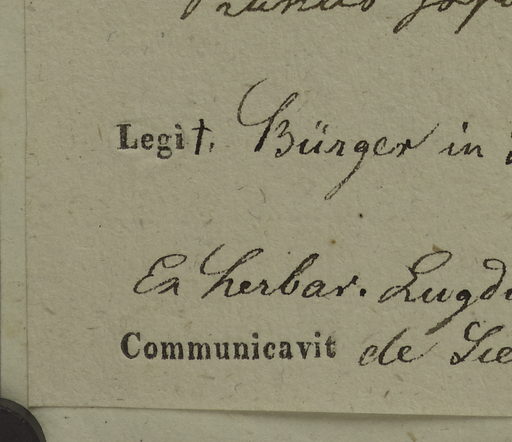 Legit. Bürger in
Ex herbar. Lugd
Communicavit de Sie